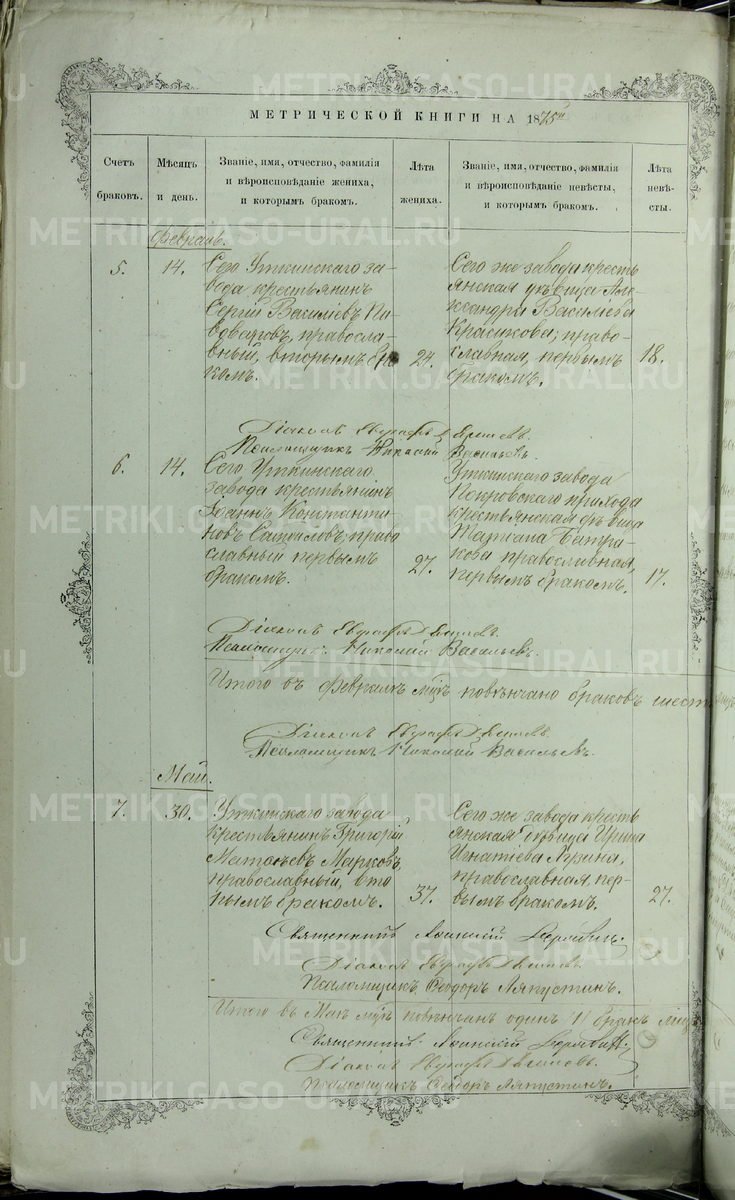 МЕТРИЧЕСКОЙ КНИГИ НА 1875й
Счетъ
браковъ.
Мѣсяцъ
и день.
Званіе, имя, отчество, фамилія
и вѣроисповѣданіе жениха,
и которымъ бракомъ.
Лѣта
жениха.
Званіе, имя, отчество, фамилія
и вѣроисповѣданіе невѣсты,
и которымъ бракомъ.
Лѣта
невѣ-
сты.
Февраль.
5.
14.
Сего Уткинскаго за-
вода крестьянинъ
Сергій Василіевъ Пи-
воваровъ, православ-
ный, вторымъ бра
комъ.
24.
Сего же завода кресть
янская дѣвица Але
ксандра Василіева
Красикова; право-
славная, первымъ
бракомъ.
18.
Діаконъ Евграфъ
Псаломщикъ Николай Васильевъ.
6.
14.
Сего Уткинскаго
завода крестьянинъ
Іоаннъ Константи
новъ право
славный первымъ
бракомъ.
27.
Уткинскаго завода
Покровскаго прихода
крестьянская дѣвица
Татіана Батра
кова православная,
первымъ бракомъ.
17.
Діаконъ Евграфъ
Псаломщикъ Николай Васильевъ.
Итого въ Февралѣ м̃цѣ повѣнчано браковъ шесть
Діаконъ Евграфъ
Псаломщикъ Николай Васильевъ.
Май.
7.
30.
Уткинскаго завода
крестьянинъ Григорій
Марковъ,
православный, вто
рымъ бракомъ.
37.
Сего же завода кресть
янская дѣвица Ирина
Игнатіева Лузина,
православная, пер-
вымъ бракомъ.
27.
Священникъ
Діаконъ Евграфъ
Псаломщикъ Ѳеодоръ Ляпустинъ.
Итого въ Маѣ м̃цѣ повѣнчанъ одинъ 1 бракъ
Священникъ
Діаконъ Евграфъ
Псаломщикъ Ѳеодоръ Ляпустинъ.
METRIKI.GASO-URAL.RU